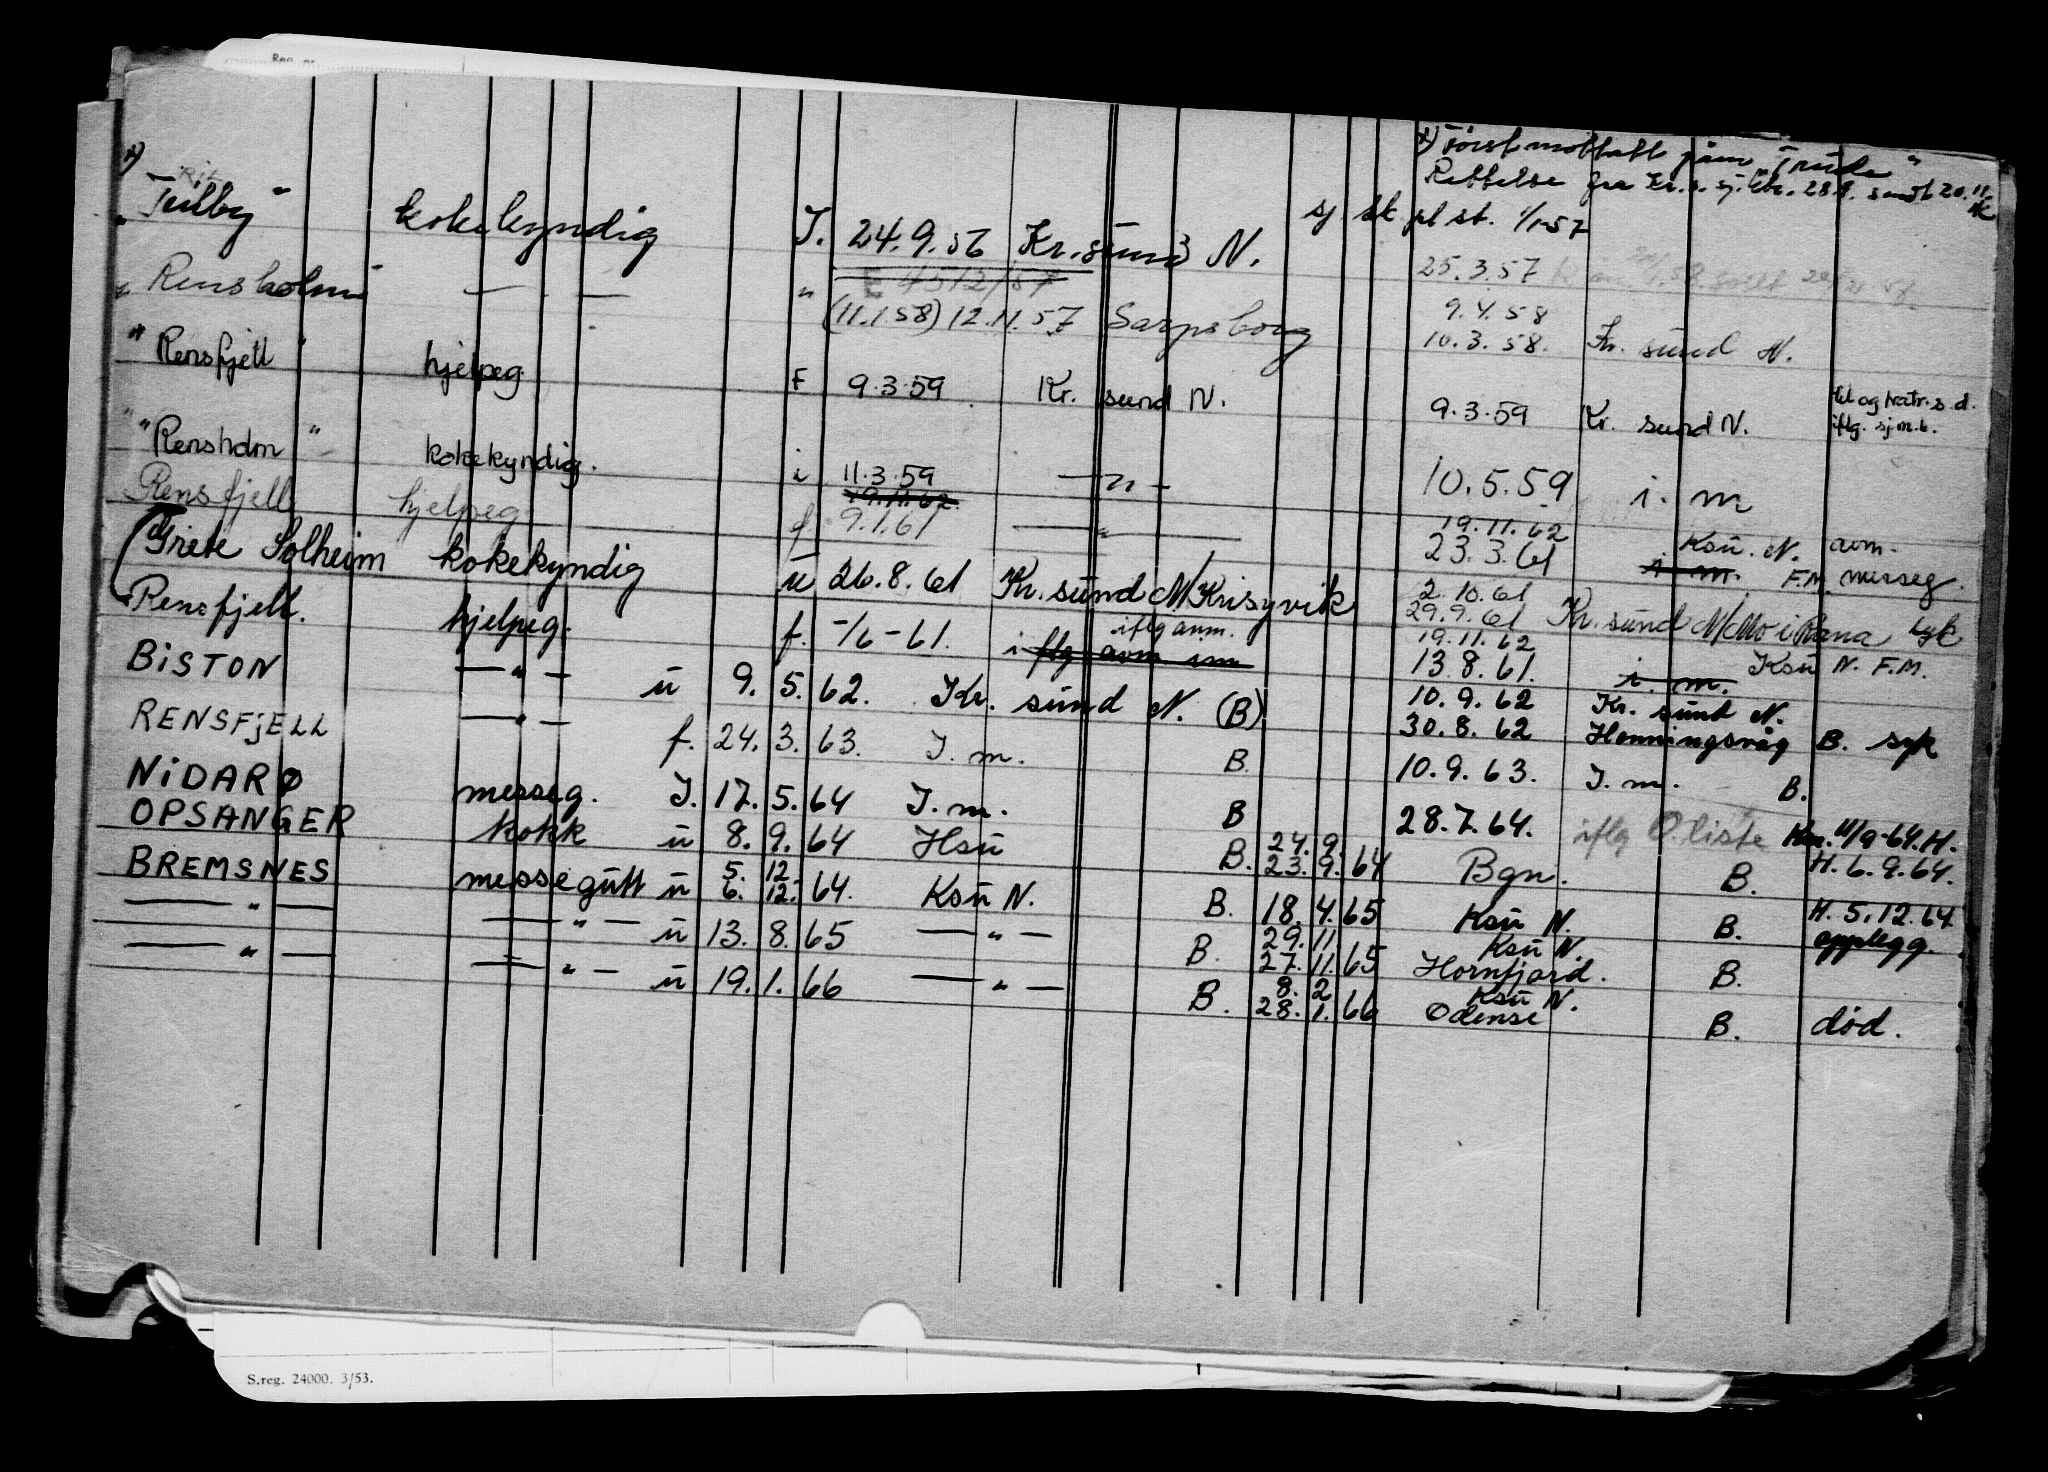 Reg. nr.
x) Først mottatt gjem "Trude"
Rettelse fra Kr.s. sj. 28.9. sendt 20.11
x) "Tillby" kokekyndig I. 24.9.56 Kr.sund N. sj st pl st. 1/1-57
E 4512/57 25.3.57
" Rensholm — " — " (11.1.58) 12.11.57 Sarpsborg 9.4.58
10.3.58. Kr. sund N.
"Rensfjell" hjelpeg F 9.3.59 Kr. sund N. 9.3.59 Kr. sund N. iflg. sj.m.b.
"Rensholm" kokekyndig. i 11.3.59 — " — 10.5.59 i. m
19.11.62
Rensfjell hjelpeg f. 9.1.61 — " — 19.11.62 Ksu. N. avm.
23.3.61 i. m. F.M. messeg.
Grete Solheim kokekyndig u 26.8.61 Kr. sund N/Krisyvik 2.10.61
29.9.61 Kr. sund N/Mo i Rana syk
Rensfjell. hjelpeg. f. -/6-61. iflg avm. 19.11.62 Ksu N. F.M.
i flg avm im 13.8.61. i. m.
BiSTON — " — u 9. 5. 62. Kr. sund N. (B) 10.9.62 Kr. sund N.
30.8.62 Honningsvåg B. syk
RENSFjELL — " — f. 24. 3. 63. I. m. B. 10.9.63. I. m. B.
NiDARØ messeg. I. 17. 5. 64 I. m. B 28.7.64. iflg O.liste 11/9-64. H.
OPSANGER kokk u 8. 9. 64 Hsu B. 24. 9.
23. 9. 64 Bgn. B. H. 6.9.64.
BREMSNES messegutt u 5. 12.
6. 12. 64. Ksu N. B. 18. 4. 65 Ksu N. B. H. 5.12.64 opplegg.
— " — — " — u 13. 8. 65 — " — B. 29. 11. Ksu N.
27. 11. 65 Hornfjord. B.
— " — — " — u 19. 1. 66 — " — B. 8. 2 Ksu N.
28. 1. 66 Odense B. død.
S.reg. 24000. 3/53.